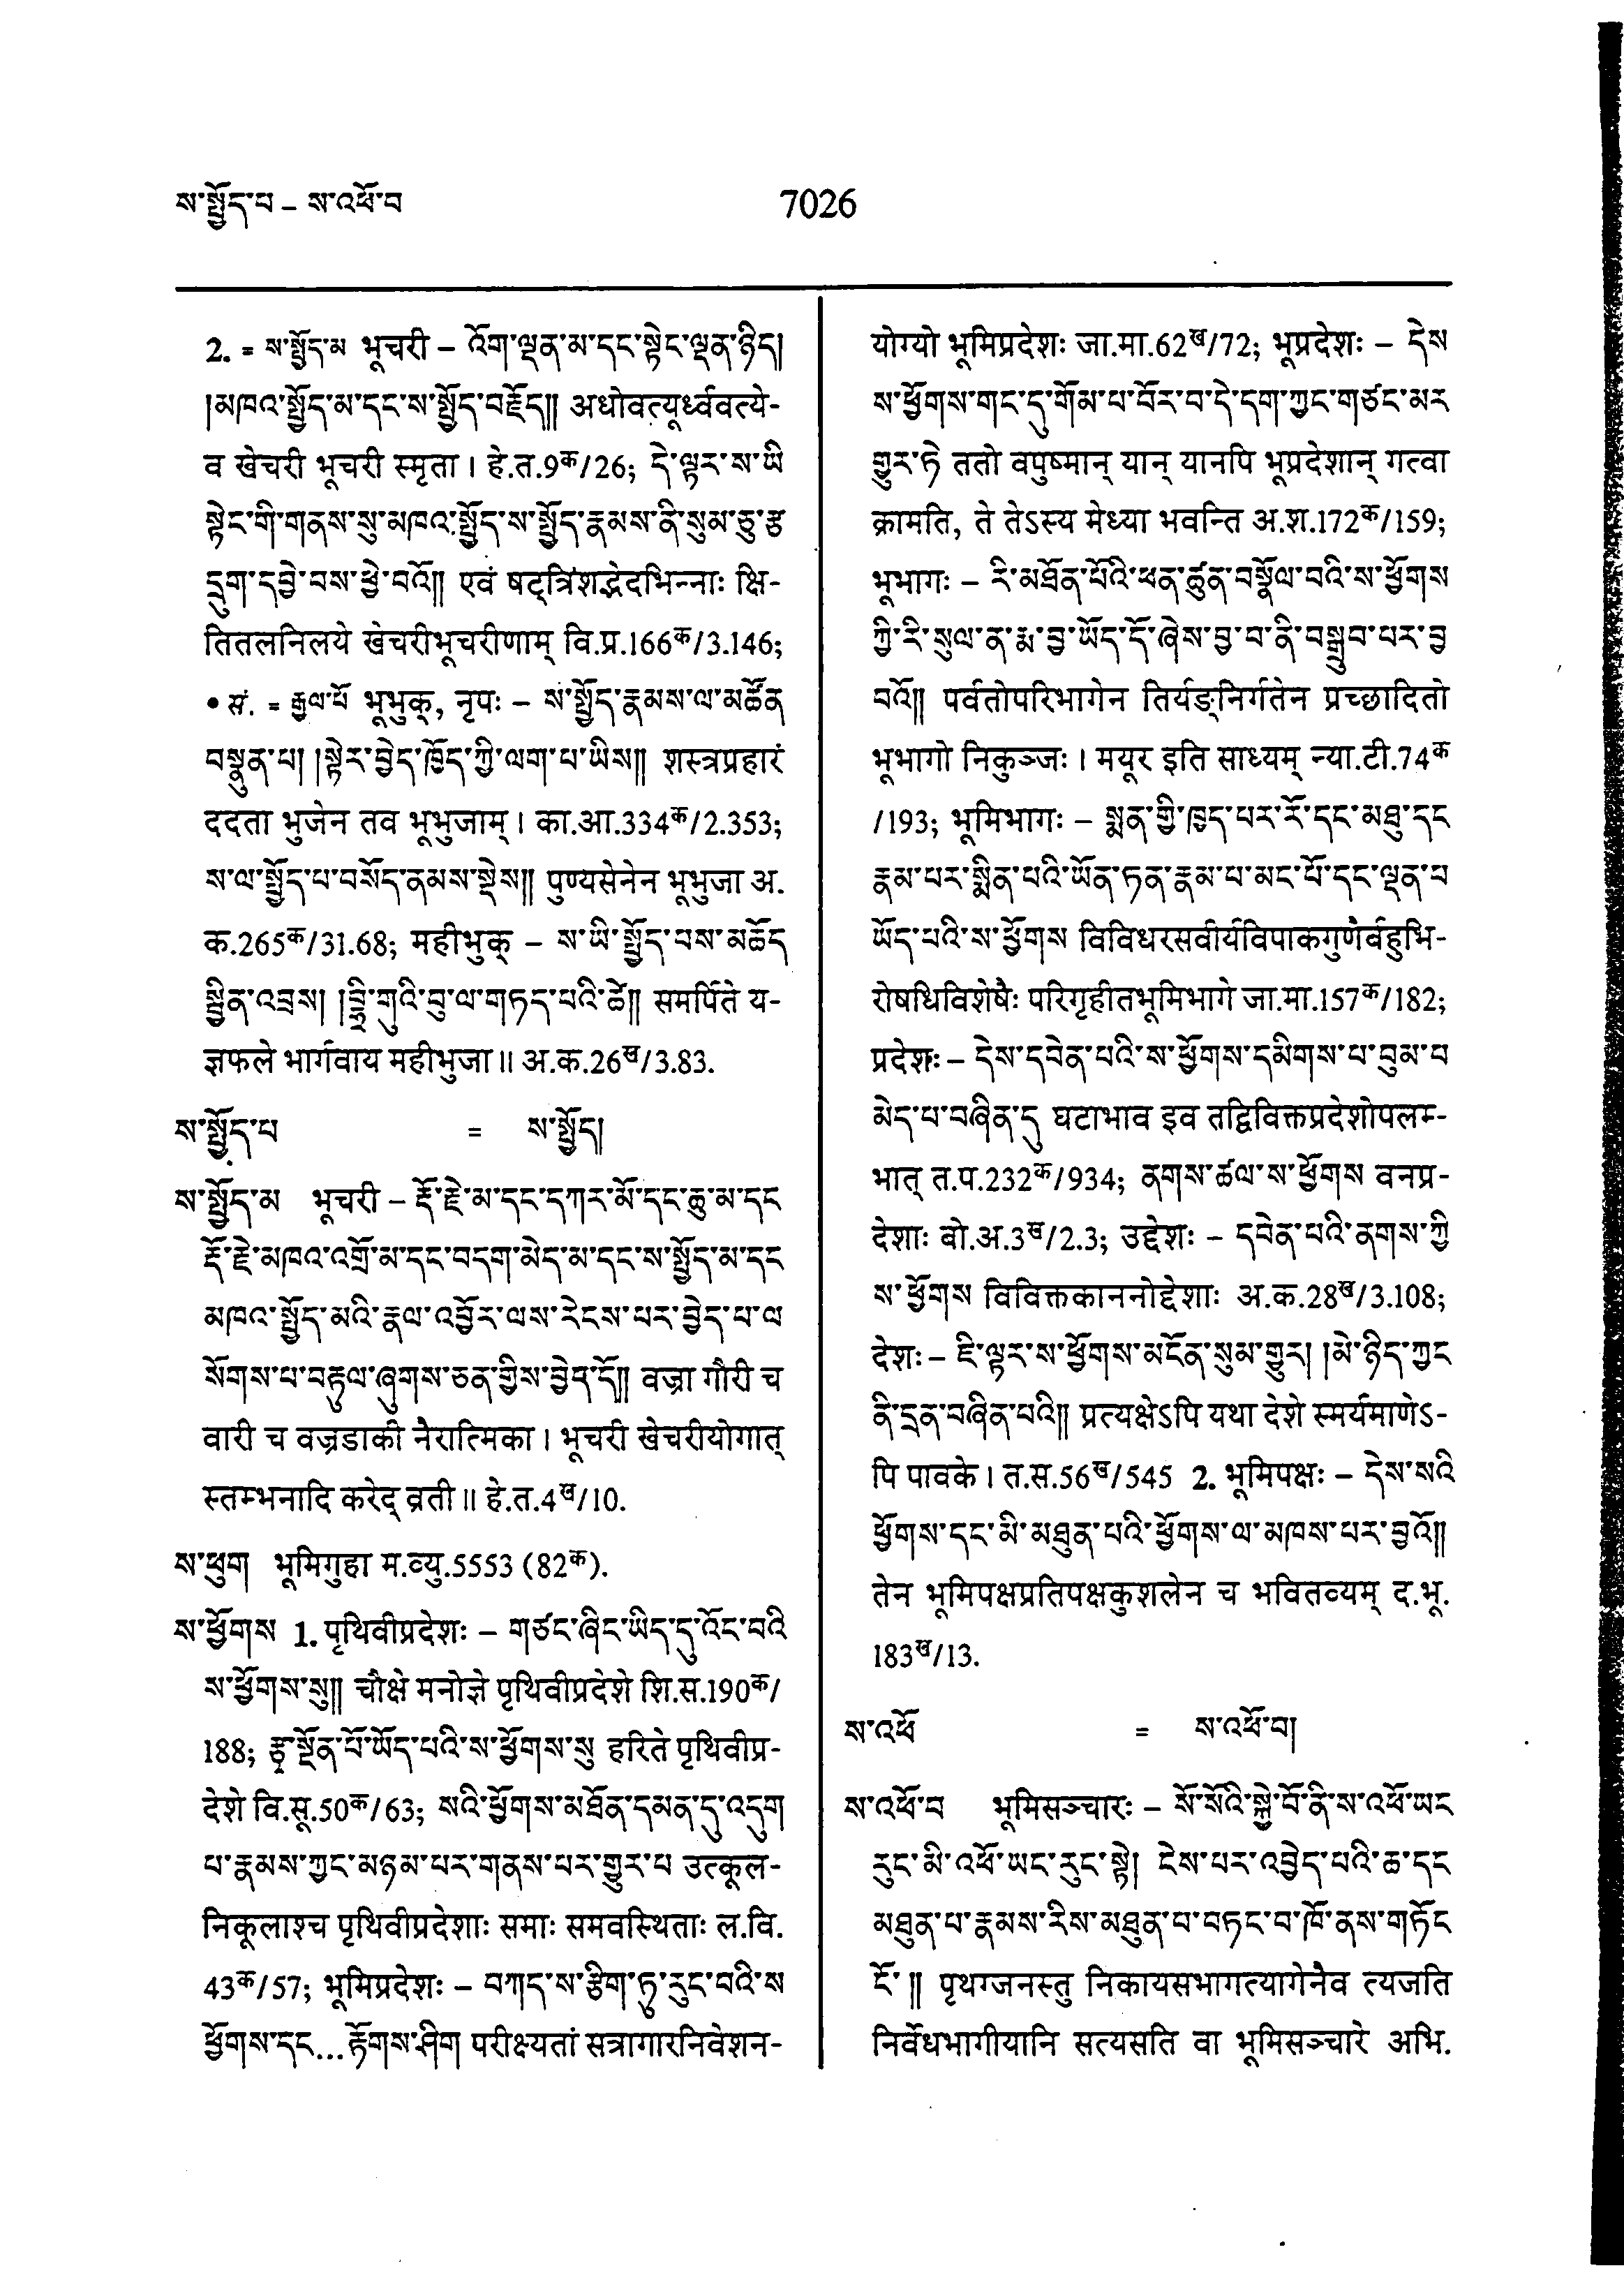 ས་སྤྱོད་པ – ས་འཕོ་བ
7026
2. = ས་སྤྱོད་མ भूचरी – འོག་ལྡན་མ་དང་སྟེང་ལྡན་ཉིད།
།མཁའ་སྤྱོད་མ་དང་ས་སྤྱོད་བརྗོད།། अधोवत्यूर्ध्ववत्ये-
व खेचरी भूचरी स्मृता । हे.त.9क/26; དེ་ལྟར་ས་ཡི
སྟེང་གི་གནས་སུ་མཁའ་སྤྱོད་ས་སྤྱོད་རྣམས་ནི་སུམ་ཅུ་རྩ
དྲུག་དབྱེ་བས་ཕྱེ་བའོ།། एवं षट्त्रिंशद्भेदभिन्नाः क्षि-
तितलनिलये खेचरीभूचरीणाम् वि.प्र.166क/3.146;
• सं. = རྒྱལ་པོ भूभुक्, नृपः – ས་སྤྱོད་རྣམས་ལ་མཚོན
བསྣུན་པ། །སྟེར་བྱེད་ཁྱོད་ཀྱི་ལག་པ་ཡིས།། शस्त्रप्रहारं
ददता भुजेन तव भूभुजाम् । का.आ.334क/2.353;
ས་ལ་སྤྱོད་པ་བསོད་ནམས་སྡེས།། पुण्यसेनेन भूभुजा अ.
क.265क/31.68; महीभुक् – ས་ཡི་སྤྱོད་པས་མཆོད
སྦྱིན་འབྲས། །བྷྲི་གུའི་བུ་ལ་གཏད་པའི་ཚེ།། समर्पिते य-
ज्ञफले भार्गवाय महीभुजा ॥ अ.क.26ख/3.83.
ས་སྤྱོད་པ = ས་སྤྱོད།
ས་སྤྱོད་མ भूचरी – རྡོ་རྗེ་མ་དང་དཀར་མོ་དང་ཆུ་མ་དང
རྡོ་རྗེ་མཁའ་འགྲོ་མ་དང་བདག་མེད་མ་དང་ས་སྤྱོད་མ་དང
མཁའ་སྤྱོད་མའི་རྣལ་འབྱོར་ལས་རེངས་པར་བྱེད་པ་ལ
སོགས་པ་བརྟུལ་ཞུགས་ཅན་གྱིས་བྱེད་དོ།། वज्रा गौरी च
वारी च वज्रडाकी नैरात्मिका । भूचरी खेचरीयोगात्
स्तम्भनादि करेद् व्रती ॥ हे.त.4ख/10.
ས་ཕུག भूमिगुहा म.व्यु.5553 (82क).
ས་ཕྱོགས 1. पृथिवीप्रदेशः – གཙང་ཞིང་ཡིད་དུ་འོང་བའི
ས་ཕྱོགས་སུ།། चौक्षे मनोज्ञे पृथिवीप्रदेशे शि.स.190क/
188; རྩྭ་སྔོན་པོ་ཡོད་པའི་ས་ཕྱོགས་སུ हरिते पृथिवीप्र-
देशे वि.सू.50क/63; སའི་ཕྱོགས་མཐོན་དམན་དུ་འདུག
པ་རྣམས་ཀྱང་མཉམ་པར་གནས་པར་གྱུར་པ उत्कूल-
निकूलाश्च पृथिवीप्रदेशाः समाः समवस्थिताः ल.वि.
43क/57; भूमिप्रदेशः – བཀད་ས་རྩིག་ཏུ་རུང་བའི་ས
ཕྱོགས་དང...རྟོགས་ཤིག परीक्ष्यतां सत्रागारनिवेशन-
योग्यो भूमिप्रदेशः जा.मा.62ख/72; भूप्रदेशः – དེས
ས་ཕྱོགས་གང་དུ་གོམ་པ་བོར་བ་དེ་དག་ཀྱང་གཙང་མར
གྱུར་ཏེ ततो वपुष्मान् यान् यानपि भूप्रदेशान् गत्वा
क्रामति, ते तेऽस्य मेध्या भवन्ति अ.श.172क/159;
भूभागः – རི་མཐོན་པོའི་ཕན་ཚུན་བསྣོལ་བའི་ས་ཕྱོགས
ཀྱི་རི་སུལ་ན་རྨ་བྱ་ཡོད་དོ་ཞེས་བྱ་བ་ནི་བསྒྲུབ་པར་བྱ
བའོ།། पर्वतोपरिभागेन तिर्यङ्निर्गतेन प्रच्छादितो
भूभागो निकुञ्जः । मयूर इति साध्यम् न्या.टी.74क
/193; भूमिभागः – སྨན་གྱི་ཁྱད་པར་རོ་དང་མཐུ་དང
རྣམ་པར་སྨིན་པའི་ཡོན་ཏན་རྣམ་པ་མང་པོ་དང་ལྡན་པ
ཡོད་པའི་ས་ཕྱོགས विविधरसवीर्यविपाकगुणैर्बहुभि-
रोषधिविशेषैः परिगृहीतभूमिभागे जा.मा.157क/182;
प्रदेशः – དེས་དབེན་པའི་ས་ཕྱོགས་དམིགས་པ་བུམ་པ
མེད་པ་བཞིན་དུ घटाभाव इव तद्विविक्तप्रदेशोपलम्-
भात् त.प.232क/934; ནགས་ཚལ་ས་ཕྱོགས वनप्र-
देशाः बो.अ.3ख/2.3; उद्देशः – དབེན་པའི་ནགས་ཀྱི
ས་ཕྱོགས विविक्तकाननोद्देशाः अ.क.28ख/3.108;
देशः – ཇི་ལྟར་ས་ཕྱོགས་མངོན་སུམ་གྱུར། །མེ་ཉིད་ཀྱང
ནི་དྲན་བཞིན་པའི།། प्रत्यक्षेऽपि यथा देशे स्मर्यमाणेऽ-
पि पावके । त.स.56ख/545 2. भूमिपक्षः – དེས་སའི
ཕྱོགས་དང་མི་མཐུན་པའི་ཕྱོགས་ལ་མཁས་པར་བྱའོ།།
तेन भूमिपक्षप्रतिपक्षकुशलेन च भवितव्यम् द.भू.
183ख/13.
ས་འཕོ = ས་འཕོ་བ།
ས་འཕོ་བ भूमिसञ्चारः – སོ་སོའི་སྐྱེ་བོ་ནི་ས་འཕོ་ཡང
རུང་མི་འཕོ་ཡང་རུང་སྟེ། ངེས་པར་འབྱེད་པའི་ཆ་དང
མཐུན་པ་རྣམས་རིས་མཐུན་པ་བཏང་བ་ཁོ་ནས་གཏོང
ངོ་།། पृथग्जनस्तु निकायसभागत्यागेनैव त्यजति
निर्वेधभागीयानि सत्यसति वा भूमिसञ्चारे अभि.